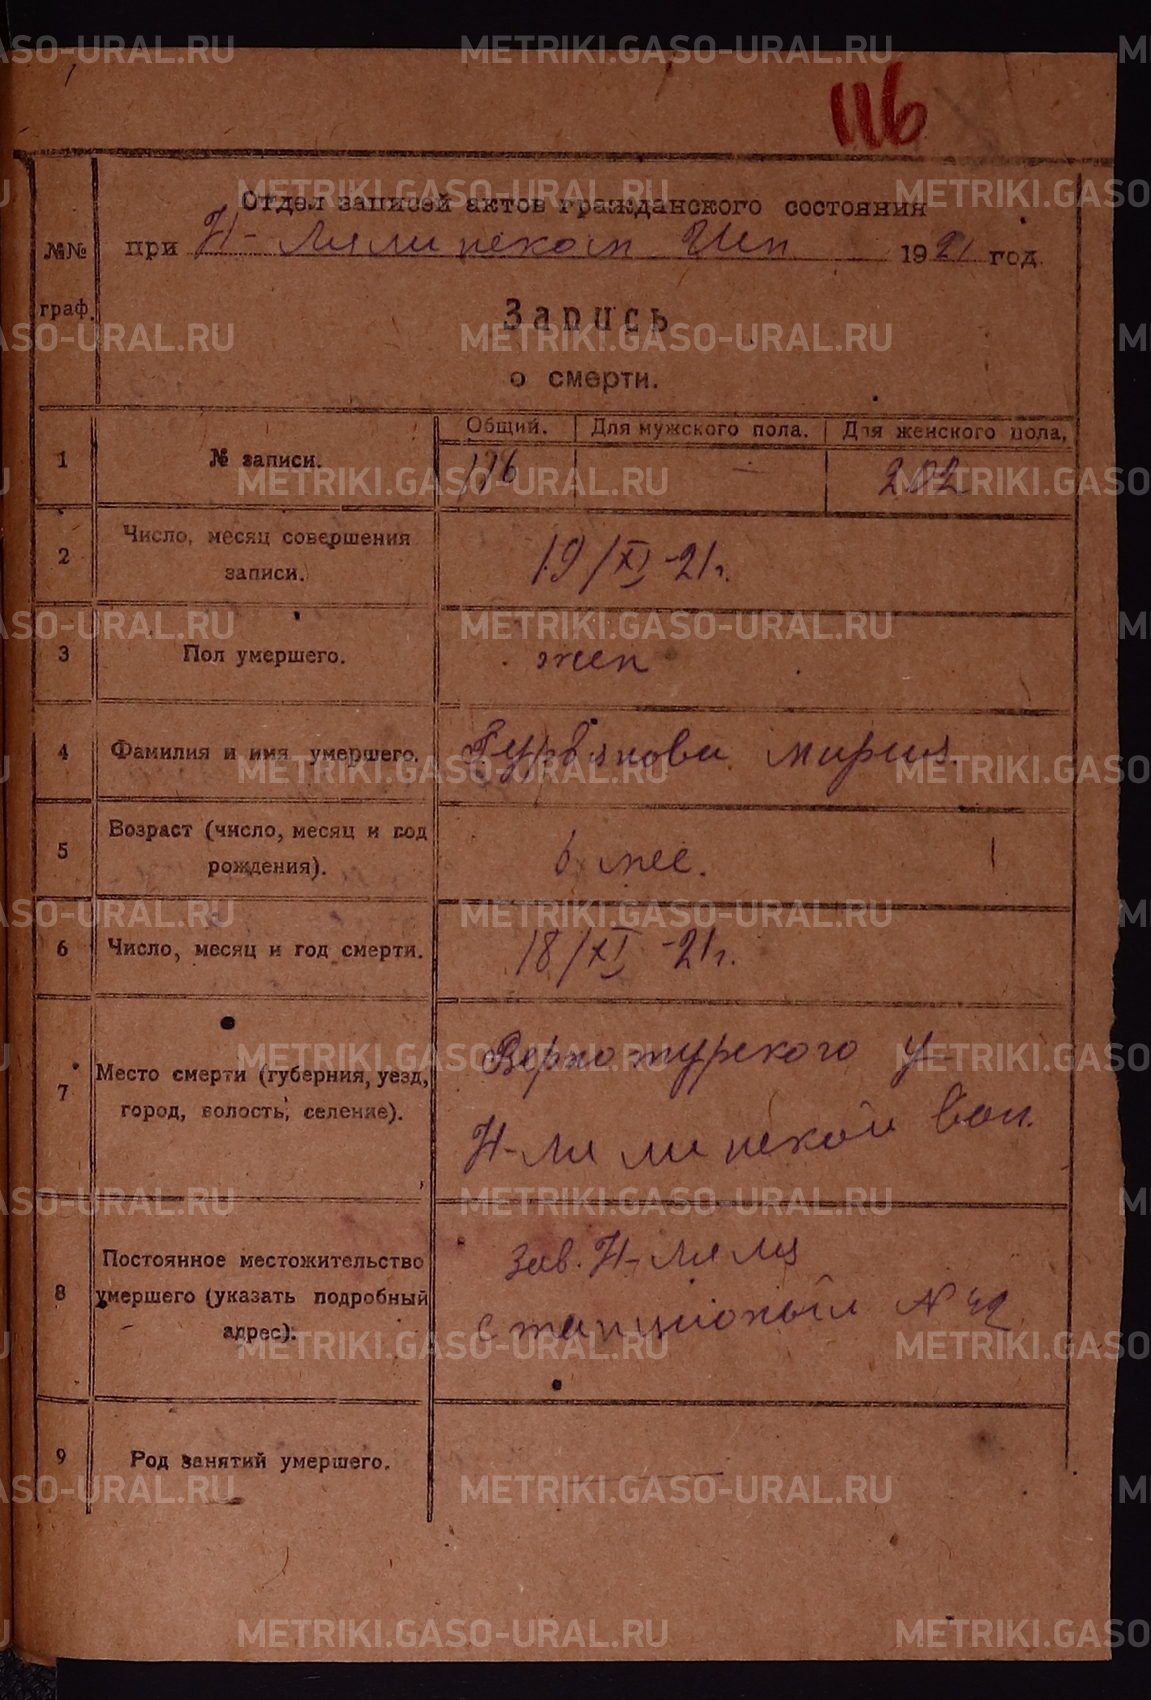 116
Отдел записей актов гражданского состояния
№№ при Н-Лялинском Исп 1921 год.
граф.
Запись
о смерти.
Общий. Для мужского пола. Для женского пола.
1 № записи. - 202
2 Число, месяц совершения записи. 19/XI-21г.
3 Пол умершего. жен
4 Фамилия и имя умершего. Мария.
5 Возраст (число, месяц и год рождения). 6 мес.
6 Число, месяц и год смерти. 18/XI-21г.
7 Место смерти (губерния, уезд, город, волость, селение). Верхотурского у
Н-Лялинской вол.
8 Постоянное местожительство умершего (указать подробный адрес). зав. Н-Ляля
N 42
9 Род занятий умершего. —
METRIKI.GASO-URAL.RU